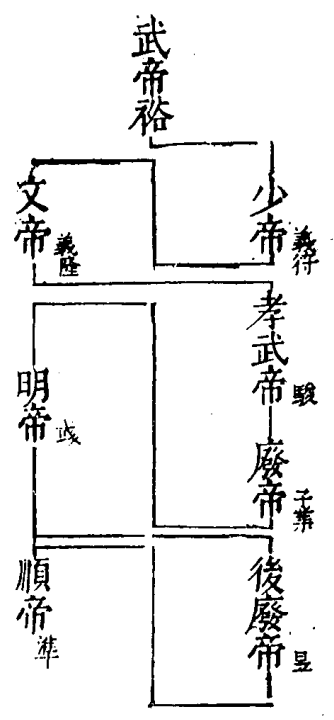 武帝裕
少帝
義符
文帝
義隆
孝武帝
駿
廢帝
子業
明帝
彧
後廢帝
昱
順帝
準